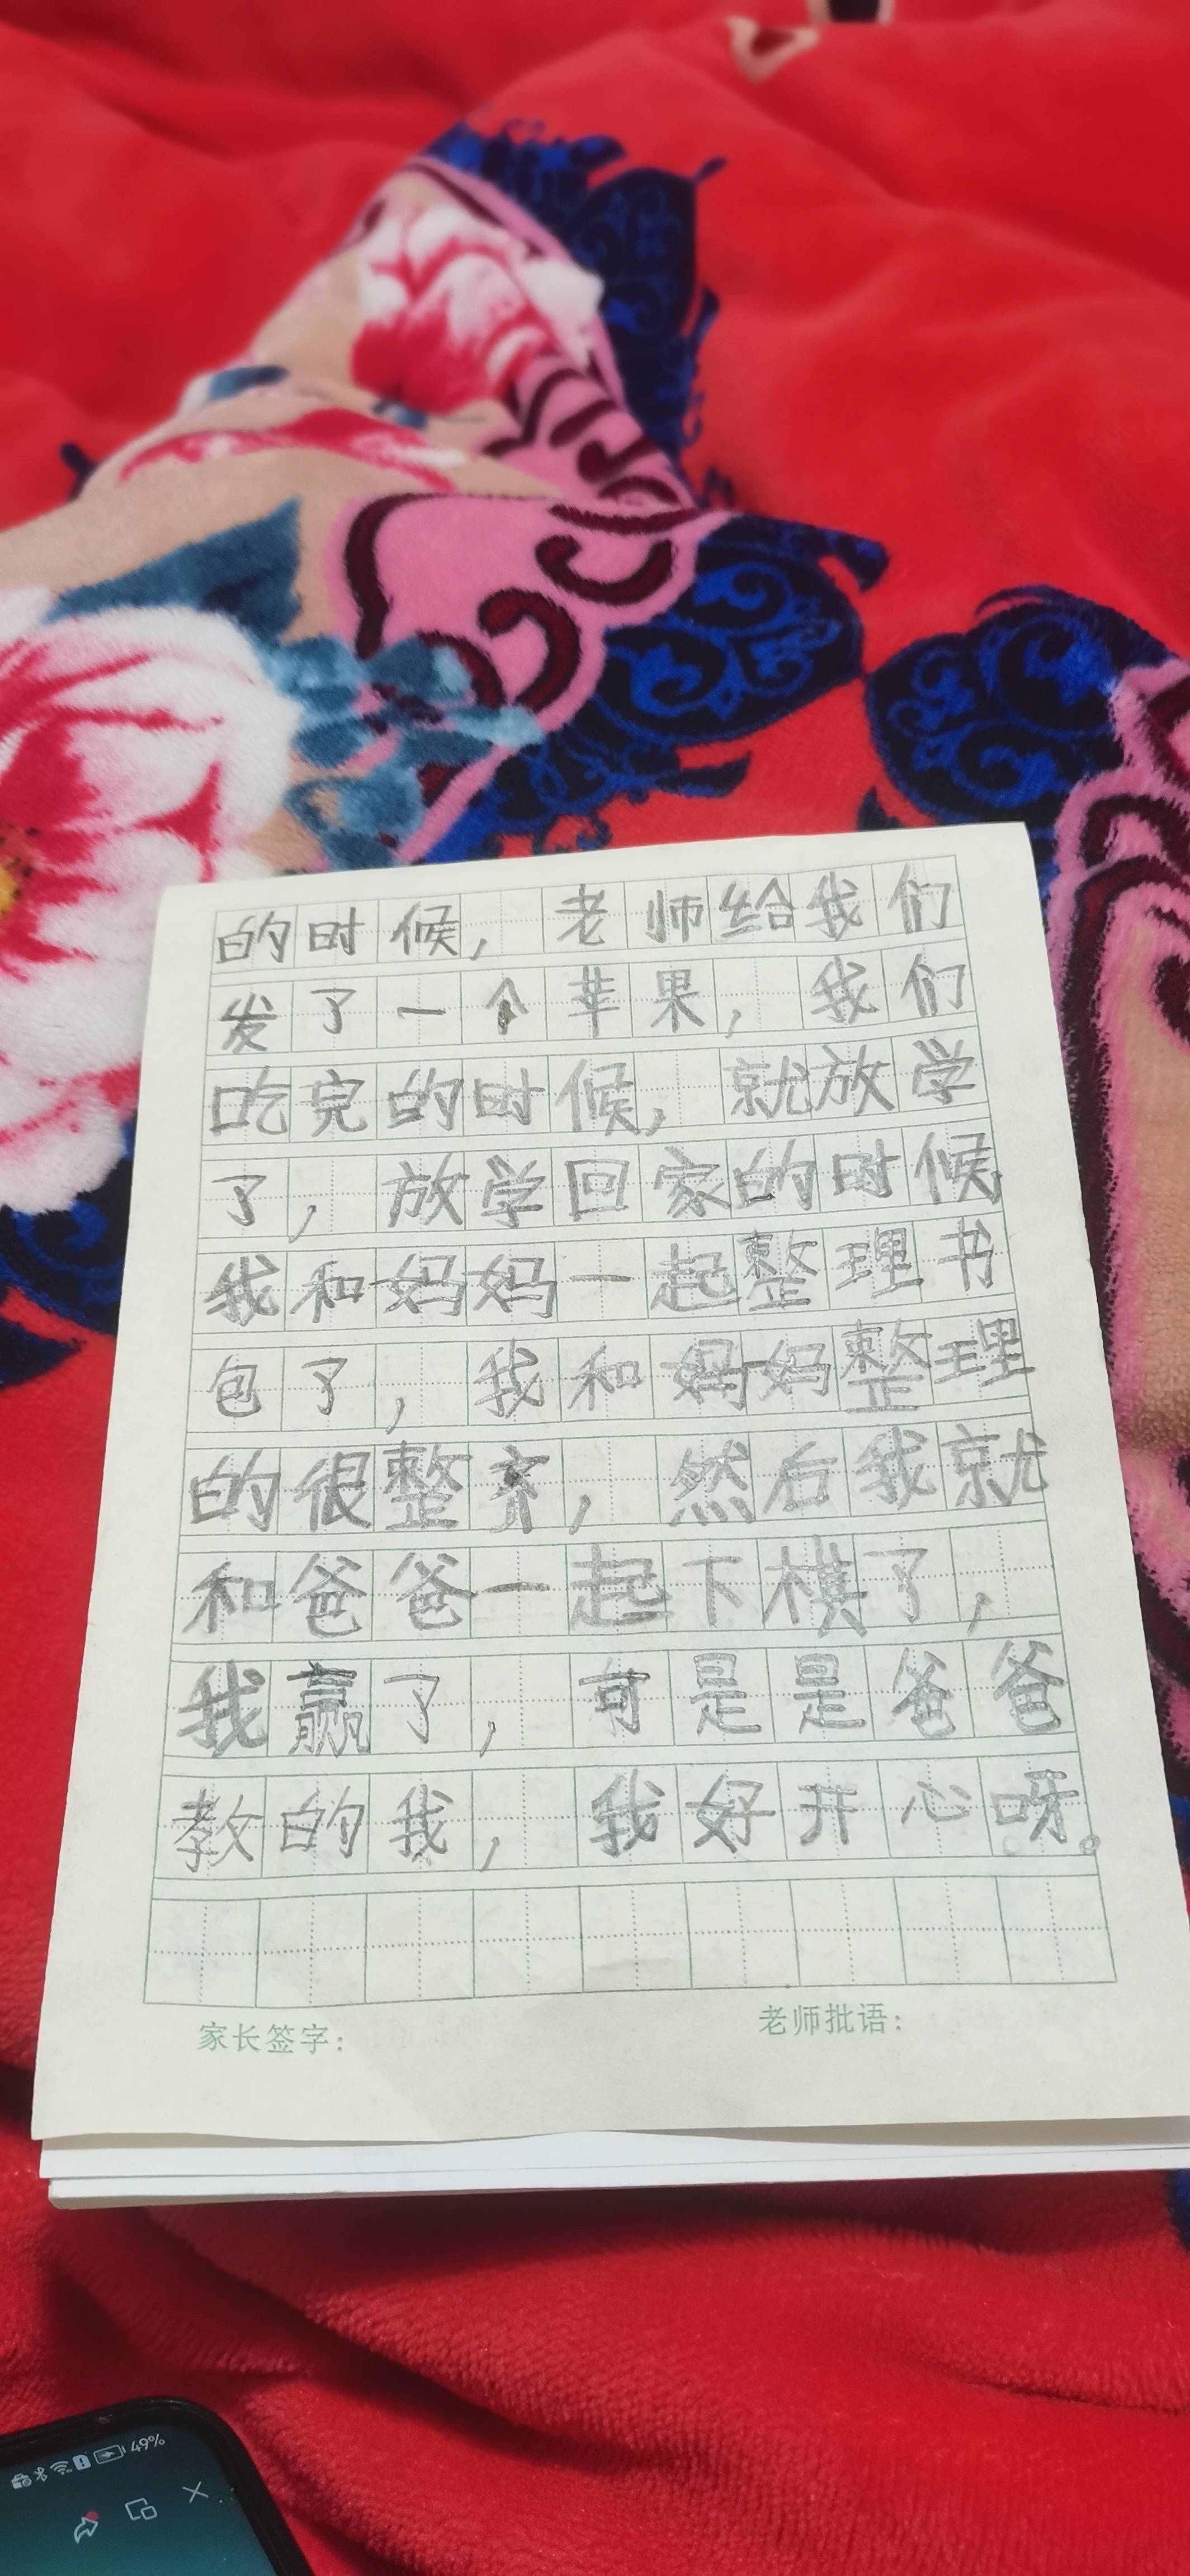 的时候，老师给我们
发了一个苹果，我们
吃完的时候，就放学
了，放学回家的时候，
我和妈妈一起整理书
包了，我和妈妈整理
的很整齐，然后我就
和爸爸一起下棋了，
我赢了，可是是爸爸
教的我，我好开心呀。
家长签字：
老师批语：
49%